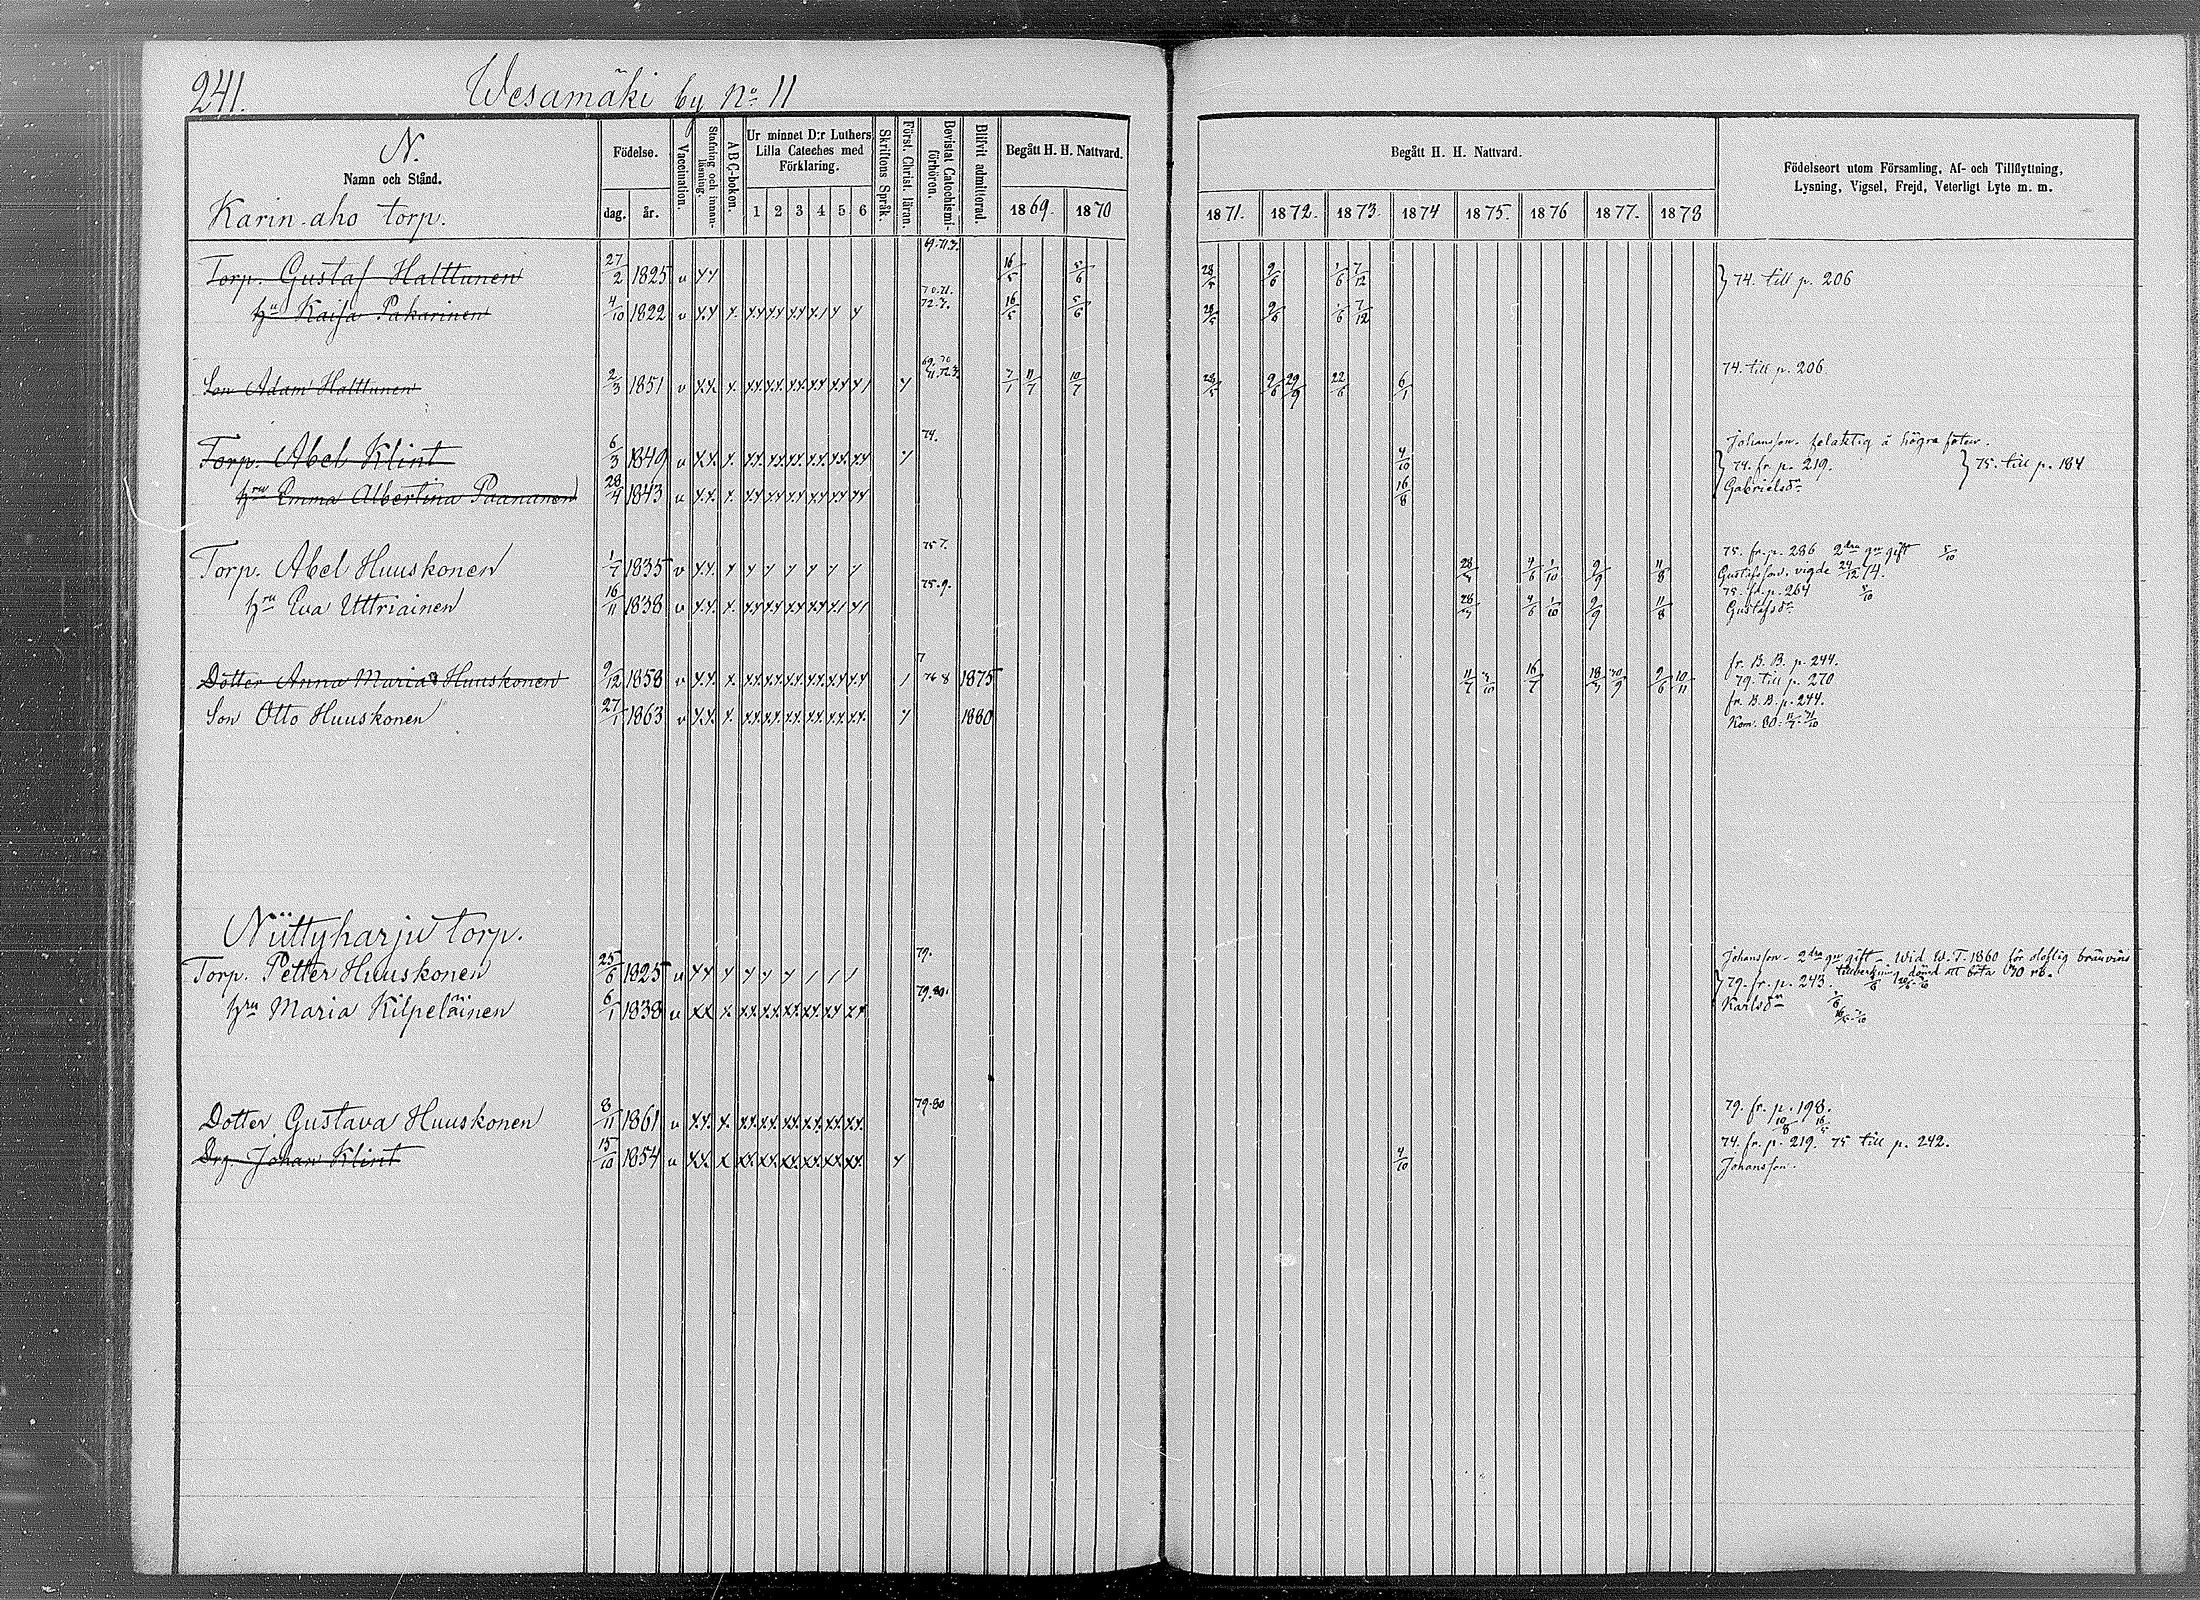 241.
Wesamäki by No 11
N.
Namn och Stånd.
Karin-aho torp.
Födelse.
dag. år.
Vaccination.
Stafning och innanläsning.
A B C-boken.
Ur minnet D:r Luthers Lilla Cateches med Förklaring.
1 2 3 4 5 6
Skriftens Språk.
Först. Christ. läran.
Bevistat Catechismiförhören.
Blifvit admitterad.
Begått H. H. Nattvard.
1869. 1870
Begått H. H. Nattvard.
1871. 1872. 1873. 1874 1875. 1876 1877. 1878
Födelseort utom Församling, Af- och Tillflyttning,
Lysning, Vigsel, Frejd, Veterligt Lyte m. m.
Torp. Gustaf Halttunen 27/2 1825 v 16/5 5/6 28/5 9/6 1/6 7/12 74. till p. 206
hu Kaisa Pakarinen 4/10 1822 v 16/5 5/6 28/5 9/6 1/6 7/12
Son Adam Halttunen 2/3 1851 v 7/1 11/7 10/7 28/5 9/6 29/9 22/6 6/1 74. till p. 206
Torp. Abel Klint 6/3 1849 v 74. 4/10 Johansson. felaktig å högra foten.
74. fr. p. 219. 75. till p. 184
hru Emma Albertina Paananen 28/4 1843 v 16/8 Gabrielsdr
Torp. Abel Huuskonen 1/7 1835 v 75 7. 28/7 4/6 1/10 9/9 11/8 75. fr. p. 286 2dra gn gift 5/10
Gustafsson. vigde 24/12 74.
hru Eva Uttriainen 16/11 1838 v 75.9. 28/7 4/6 1/10 9/9 11/8 75. fr. p. 264 5/10
Gustafsdr
Dotter Anna Maria Huuskonen 9/12 1858 v 76 8 1875 11/7 3/10 16/7 18/7 30/9 9/6 10/11 fr. B. B. p. 244.
79. till p. 270
Son Otto Huuskonen 27/1 1863 v 1880 fr. B. B. p. 244.
Kom. 80. 11/7 31/10
Nüttyharju torp.
Torp. Petter Huuskonen 25/6 1825 v 79. Johansson - 2dra gn gift - Wid W. T. 1860 för oloflig bränvins
tillverkning dömd att böta 70 rb.
79. fr. p. 243.
hru Maria Kilpeläinen 6/1 1838 v 79.80. Karlsdr
Dotter Gustava Huuskonen 8/11 1861 v 79.80 79. fr. p. 198.
10/8 16/5
Drg. Johan Klint 15/10 1854 v 4/10 74. fr. p. 219. 75 till p. 242.
Johansson.